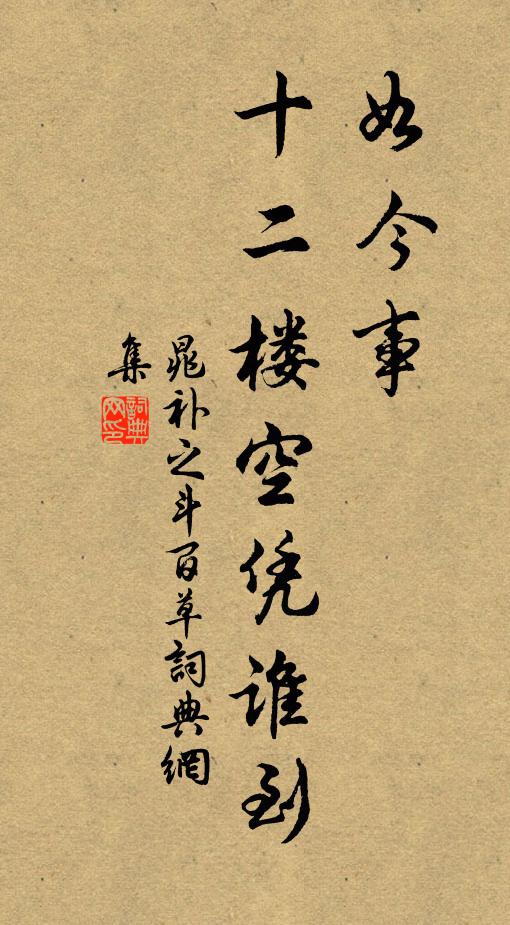 如今事
十二楼空凭谁到
晁补之斗百草詞典網
集
詞典網印